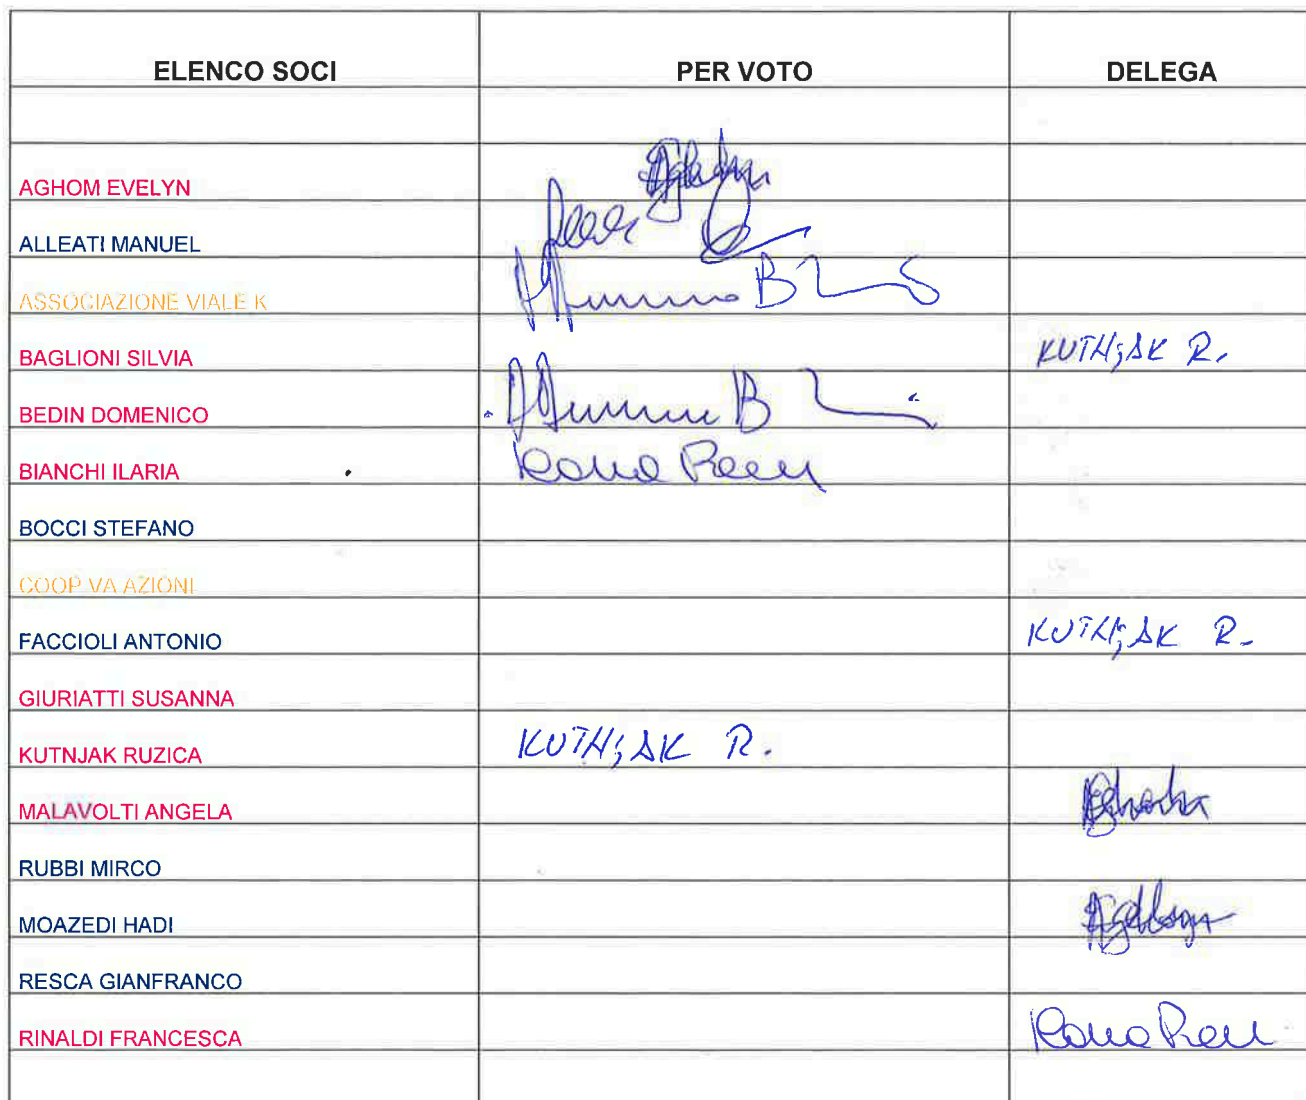 ELENCO SOCI PER VOTO DELEGA
AGHOM EVELYN
ALLEATI MANUEL
ASSOCIAZIONE VIALE K
BAGLIONI SILVIA KUTNjAK R.
BEDIN DOMENICO
BIANCHI ILARIA
BOCCI STEFANO
COOP VA AZIONI
FACCIOLI ANTONIO KUTNjAK R.
GIURIATTI SUSANNA
KUTNJAK RUZICA KUTNjAK R.
MALAVOLTI ANGELA
RUBBI MIRCO
MOAZEDI HADI
RESCA GIANFRANCO
RINALDI FRANCESCA